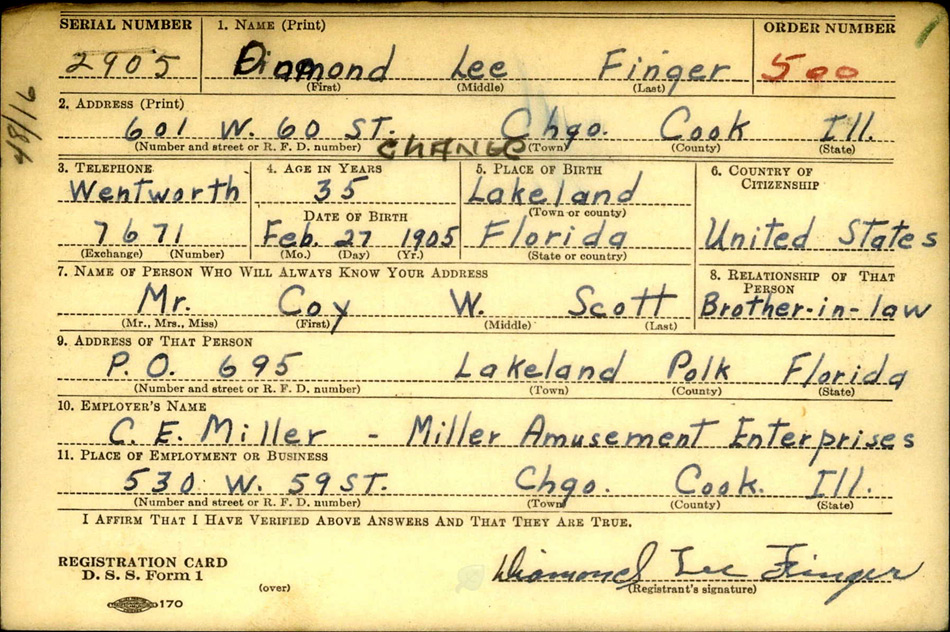 SERIAL NUMBER 1. NAME (Print) ORDER NUMBER
2905 Diamond Lee Finger 500
(First) (Middle) (Last)
48/16
2. ADDRESS (Print)
601 W. 60 ST. Chgo. Cook Ill.
(Number and street or R. F. D. number) CHANGE (Town) (County) (State)
3. TELEPHONE 4. AGE IN YEARS 5. PLACE OF BIRTH 6. COUNTRY OF
CITIZENSHIP
Wentworth 35 Lakeland
DATE OF BIRTH (Town or county)
7671 Feb. 27 1905 Florida United States
(Exchange) (Number) (Mo.) (Day) (Yr.) (State or country)
7. NAME OF PERSON WHO WILL ALWAYS KNOW YOUR ADDRESS 8. RELATIONSHIP OF THAT
PERSON
Mr. Coy W. Scott Brother-in-law
(Mr., Mrs., Miss) (First) (Middle) (Last)
9. ADDRESS OF THAT PERSON
P.O. 695 Lakeland Polk Florida
(Number and street or R. F. D. number) (Town) (County) (State)
10. EMPLOYER'S NAME
C. E. Miller - Miller Amusement Enterprises
11. PLACE OF EMPLOYMENT OR BUSINESS
530 W. 59 ST. Chgo. Cook. Ill.
(Number and street or R. F. D. number) (Town) (County) (State)
I AFFIRM THAT I HAVE VERIFIED ABOVE ANSWERS AND THAT THEY ARE TRUE.
REGISTRATION CARD
D. S. S. Form 1 Diamond Lee Finger
(over) (Registrant's signature)
170